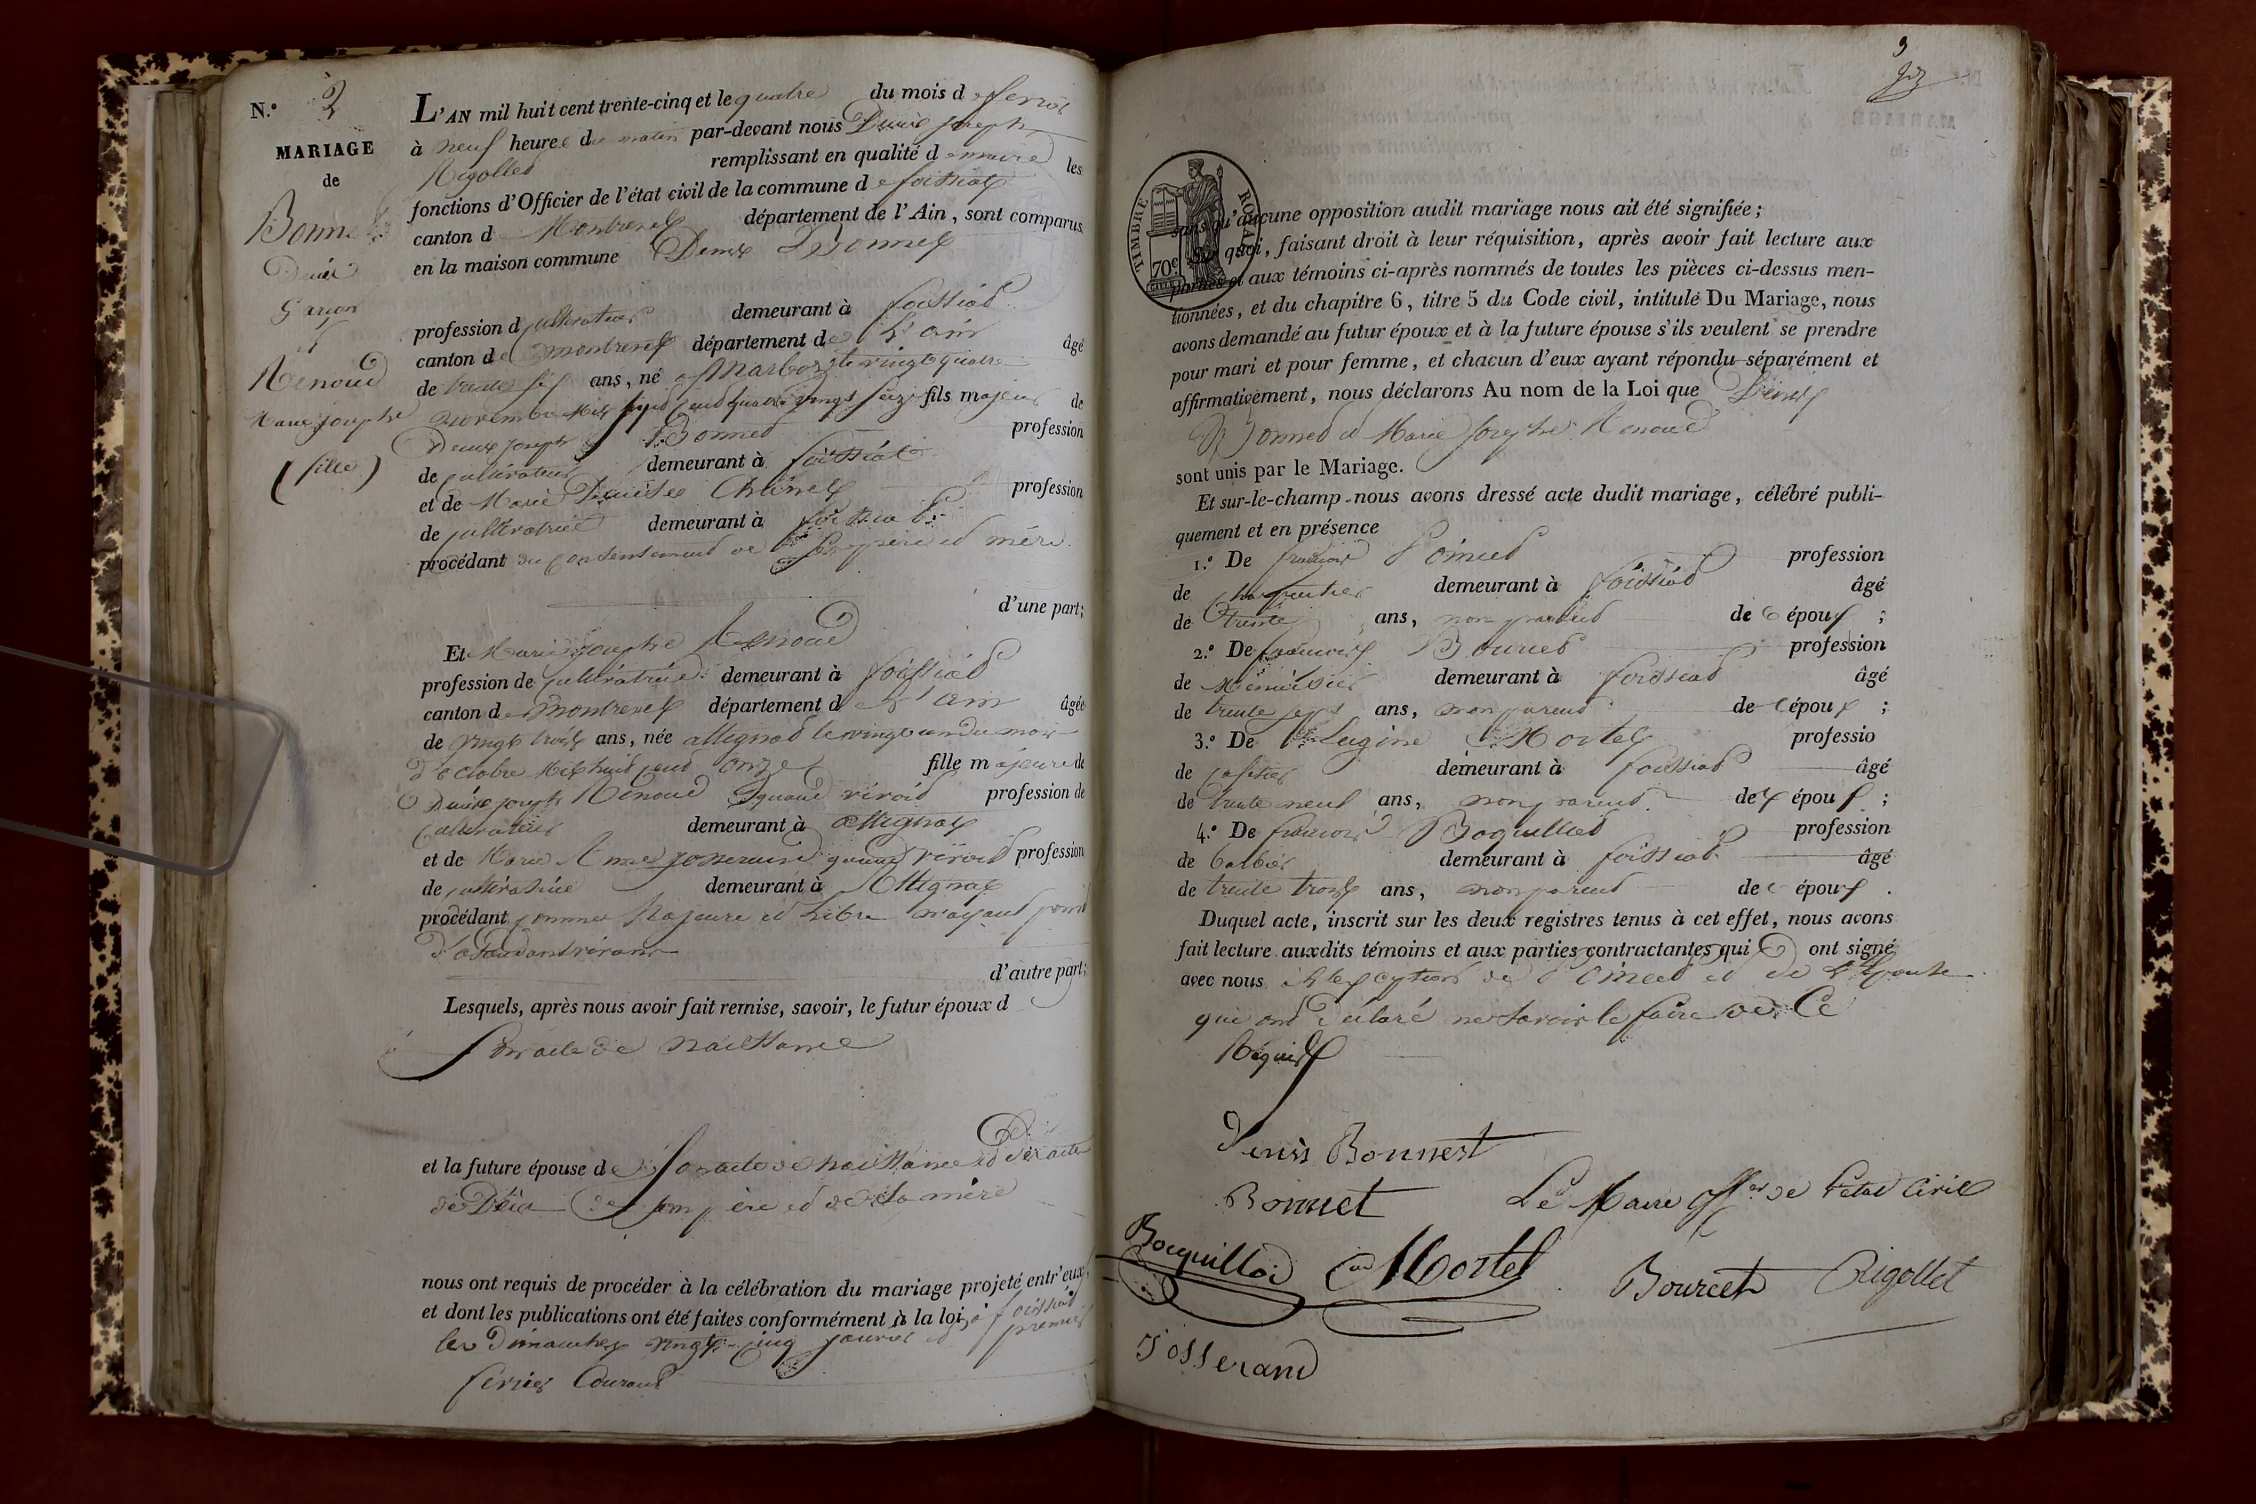 N.º 2
MARIAGE
de
Bonnet
Denis
Garçon
et
Renoud
Marie josephe
(fille)
L'AN mil huit cent trente-cinq et le quatre du mois de fevrier
à neuf heures du matin par-devant nous Denis joseph
Rigollet remplissant en qualité de maire les
fonctions d'Officier de l'état civil de la commune de foissiat
canton de Montrevel département de l'Ain, sont comparus
en la maison commune Denis Bonnet
profession de cultivateur demeurant à foissiat
canton de montrevel département de L'ain âgé
de trente ans, né a Marboz le vingt quatre
novembre Mil sept cent quatre vingt seize fils majeur de
Denis joseph Bonnet profession
de cultivateur demeurant à foissiat
et de Marie Denise profession
de cultivatrice demeurant à foissiat
procédant du consentement de ses père et mère
d'une part;
Et Marie josephe Renoud
profession de cultivatrice demeurant à foissiat
canton de montrevel département de L'ain âgée
de vingt trois ans, née attignat le vingt un du mois
d'octobre Mil huit cent onze fille majeure de
Denis joseph Renoud quand vivoit profession de
cultivateur demeurant à attignat
et de Marie Anne quand vivoit profession
de cultivatrice demeurant à Attignat
procédant comme Majeure et Libre n'ayant point
d'ascendant vivant
d'autre part;
Lesquels, après nous avoir fait remise, savoir, le futur époux d
Son acte de naissance
et la future épouse de Son acte de naissance et des actes
de Décès de son père et de sa mère
nous ont requis de procéder à la célébration du mariage projeté entr'eux,
et dont les publications ont été faites conformément à la loi, à foissiat
les Dimanches vingt-cinq janvier et premier
fevrier Courant
3
TIMBRE ROYAL
70c
sans qu'aucune opposition audit mariage nous ait été signifiée;
Sur quoi, faisant droit à leur réquisition, après avoir fait lecture aux
parties et aux témoins ci-après nommés de toutes les pièces ci-dessus men-
tionnées, et du chapitre 6, titre 5 du Code civil, intitulé Du Mariage, nous
avons demandé au futur époux et à la future épouse s'ils veulent se prendre
pour mari et pour femme, et chacun d'eux ayant répondu séparément et
affirmativement, nous déclarons Au nom de la Loi que Denis
Bonnet et Marie josephe Renoud
sont unis par le Mariage.
Et sur-le-champ nous avons dressé acte dudit mariage, célébré publi-
quement et en présence
1.º De françois profession
de charpentier demeurant à foissiat âgé
de trente ans, non parent de époux ;
2.º De françois Bourcet profession
de Menuisier demeurant à foissiat âgé
de trente sept ans, non parent de époux ;
3.º De Eugène Mortel professio
de cafetier demeurant à foissiat âgé
de trente neuf ans, non parent de époux ;
4.º De françois Boquillod profession
de barbier demeurant à foissiat âgé
de trente trois ans, non parent de époux .
Duquel acte, inscrit sur les deux registres tenus à cet effet, nous avons
fait lecture auxdits témoins et aux parties contractantes qui ont signé
avec nous à L'exception de et de L'épouse
qui ont Déclaré ne savoir le faire de Ce
Réquis
Denis Bonnest
Bonnet Le Maire off.er de l'état Civil
Bocquillod Mortel Bourcet Rigollet
Josserand